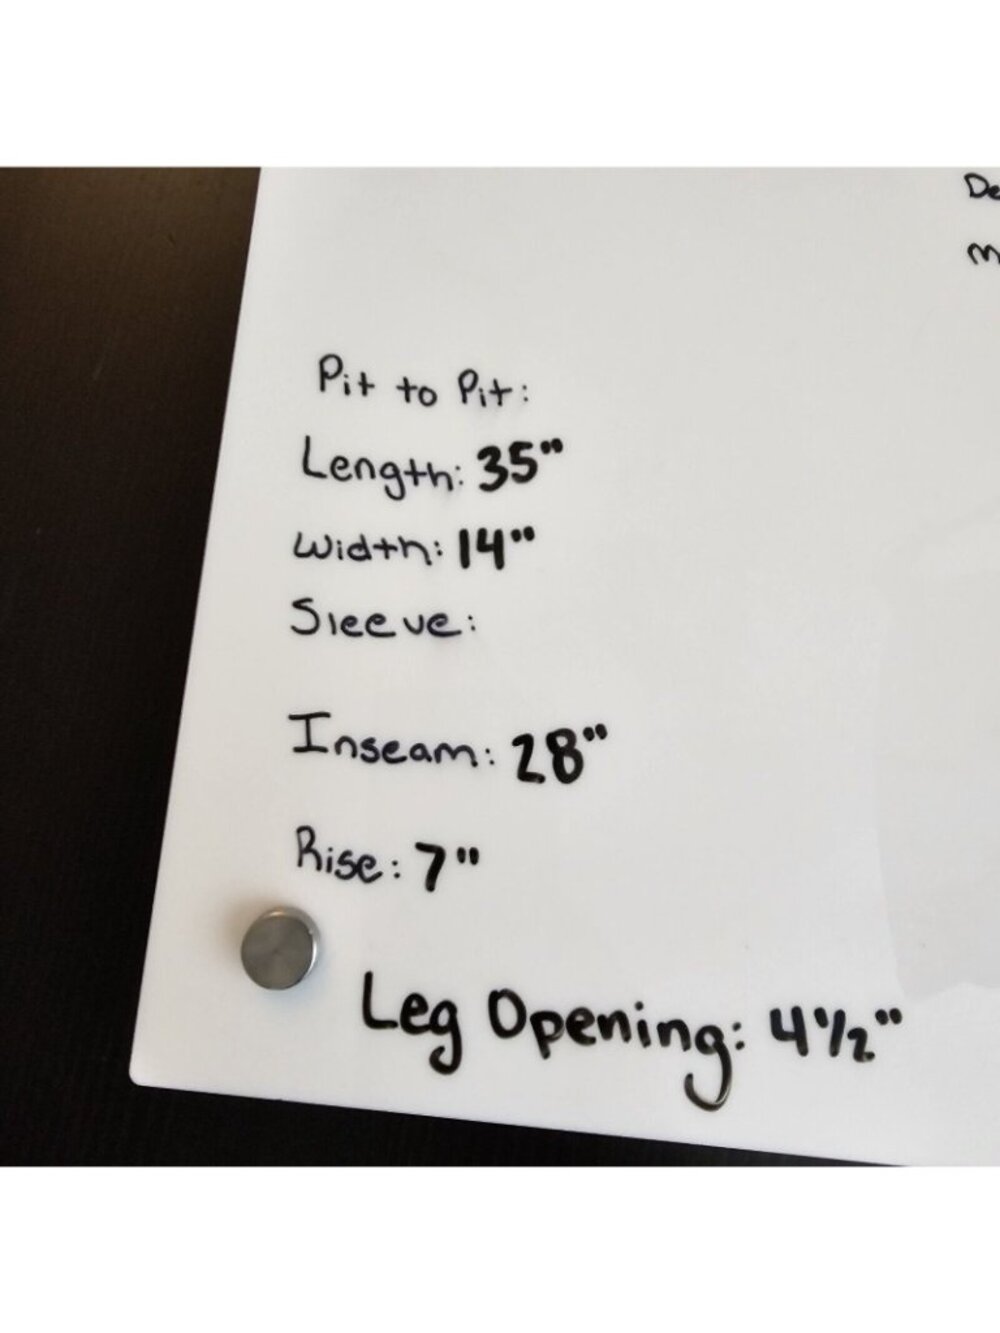 Pit to Pit:
Length: 35"
Width: 14"
Sleeve:
Inseam: 28"
Rise: 7"
Leg Opening: 4 1/2"